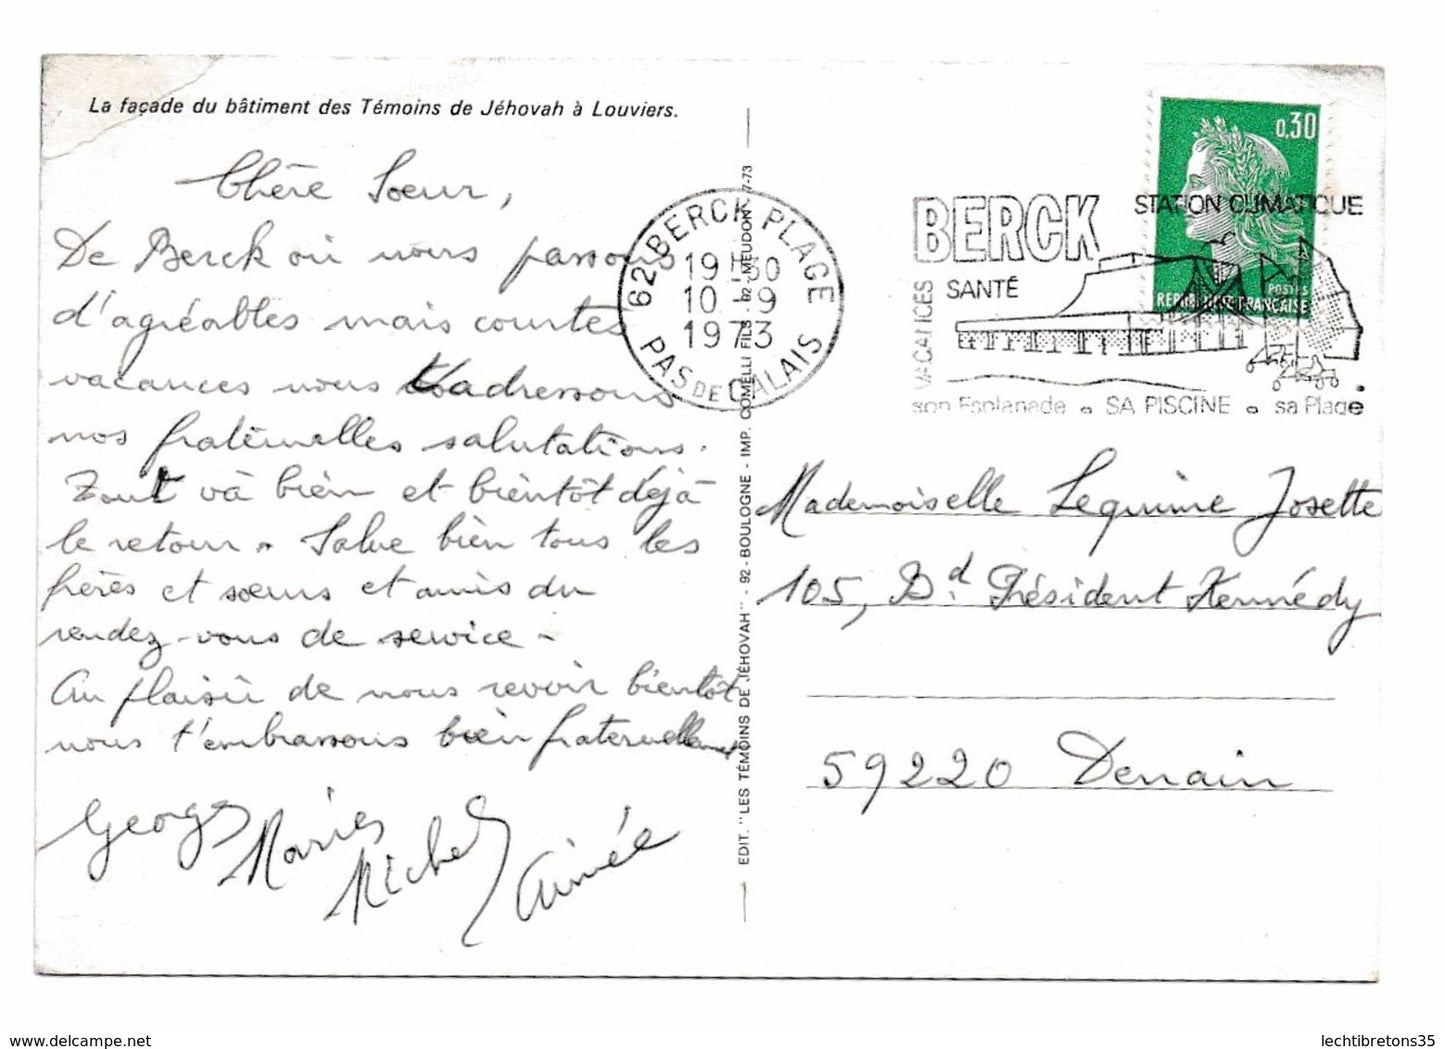 La façade du bâtiment des Témoins de Jéhovah à Louviers.
Chère Soeur,
De Berck où nous passons
d'agréables mais courtes
vacances nous t'adressons
nos fraternelles salutations.
Tout va bien et bientôt déjà
le retour. Salue bien tous les
frères et soeurs et amis du
rendez-vous de service -
Au plaisir de nous revoir bientôt
nous t'embrassons bien fraternellement
Georges
Maries
Michel
Aimée
EDIT. "LES TÉMOINS DE JÉHOVAH" - 92 - BOULOGNE - IMP. COMELLI FILS - 92 - MEUDON 7-73
62 BERCK PLAGE
19 H 30
10 - 9
1973
PAS DE CALAIS
BERCK
STATION CLIMATIQUE
SANTÉ
VACANCES
son Esplanade • SA PISCINE • sa Plage
0,30
POSTES
REPUBLIQUE FRANÇAISE
Mademoiselle Lequime Josette
105, Bd. Président Kennédy
59220 Denain
www.delcampe.net
lechtibretons35